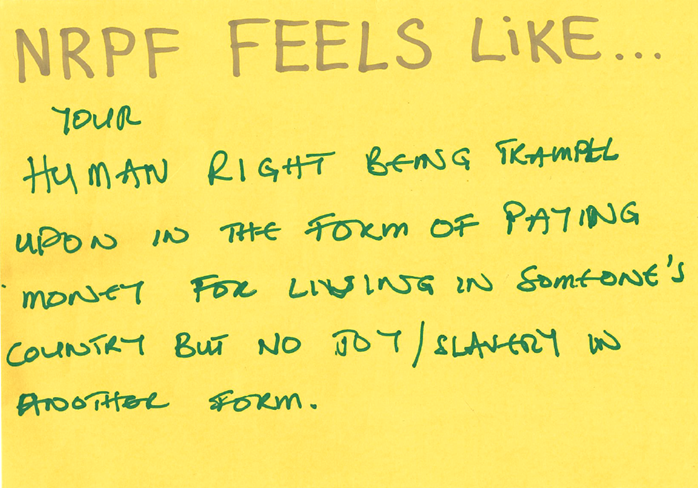 NRPF FEELS LiKE...
YOUR
HUMAN RIGHT BEING TRAMPLL
UPON IN THE FORM OF PAYING
MONEY FOR LIVING IN SOMEONE'S
COUNTRY BUT NO JOY/SLAVERY IN
ANOTHER FORM.